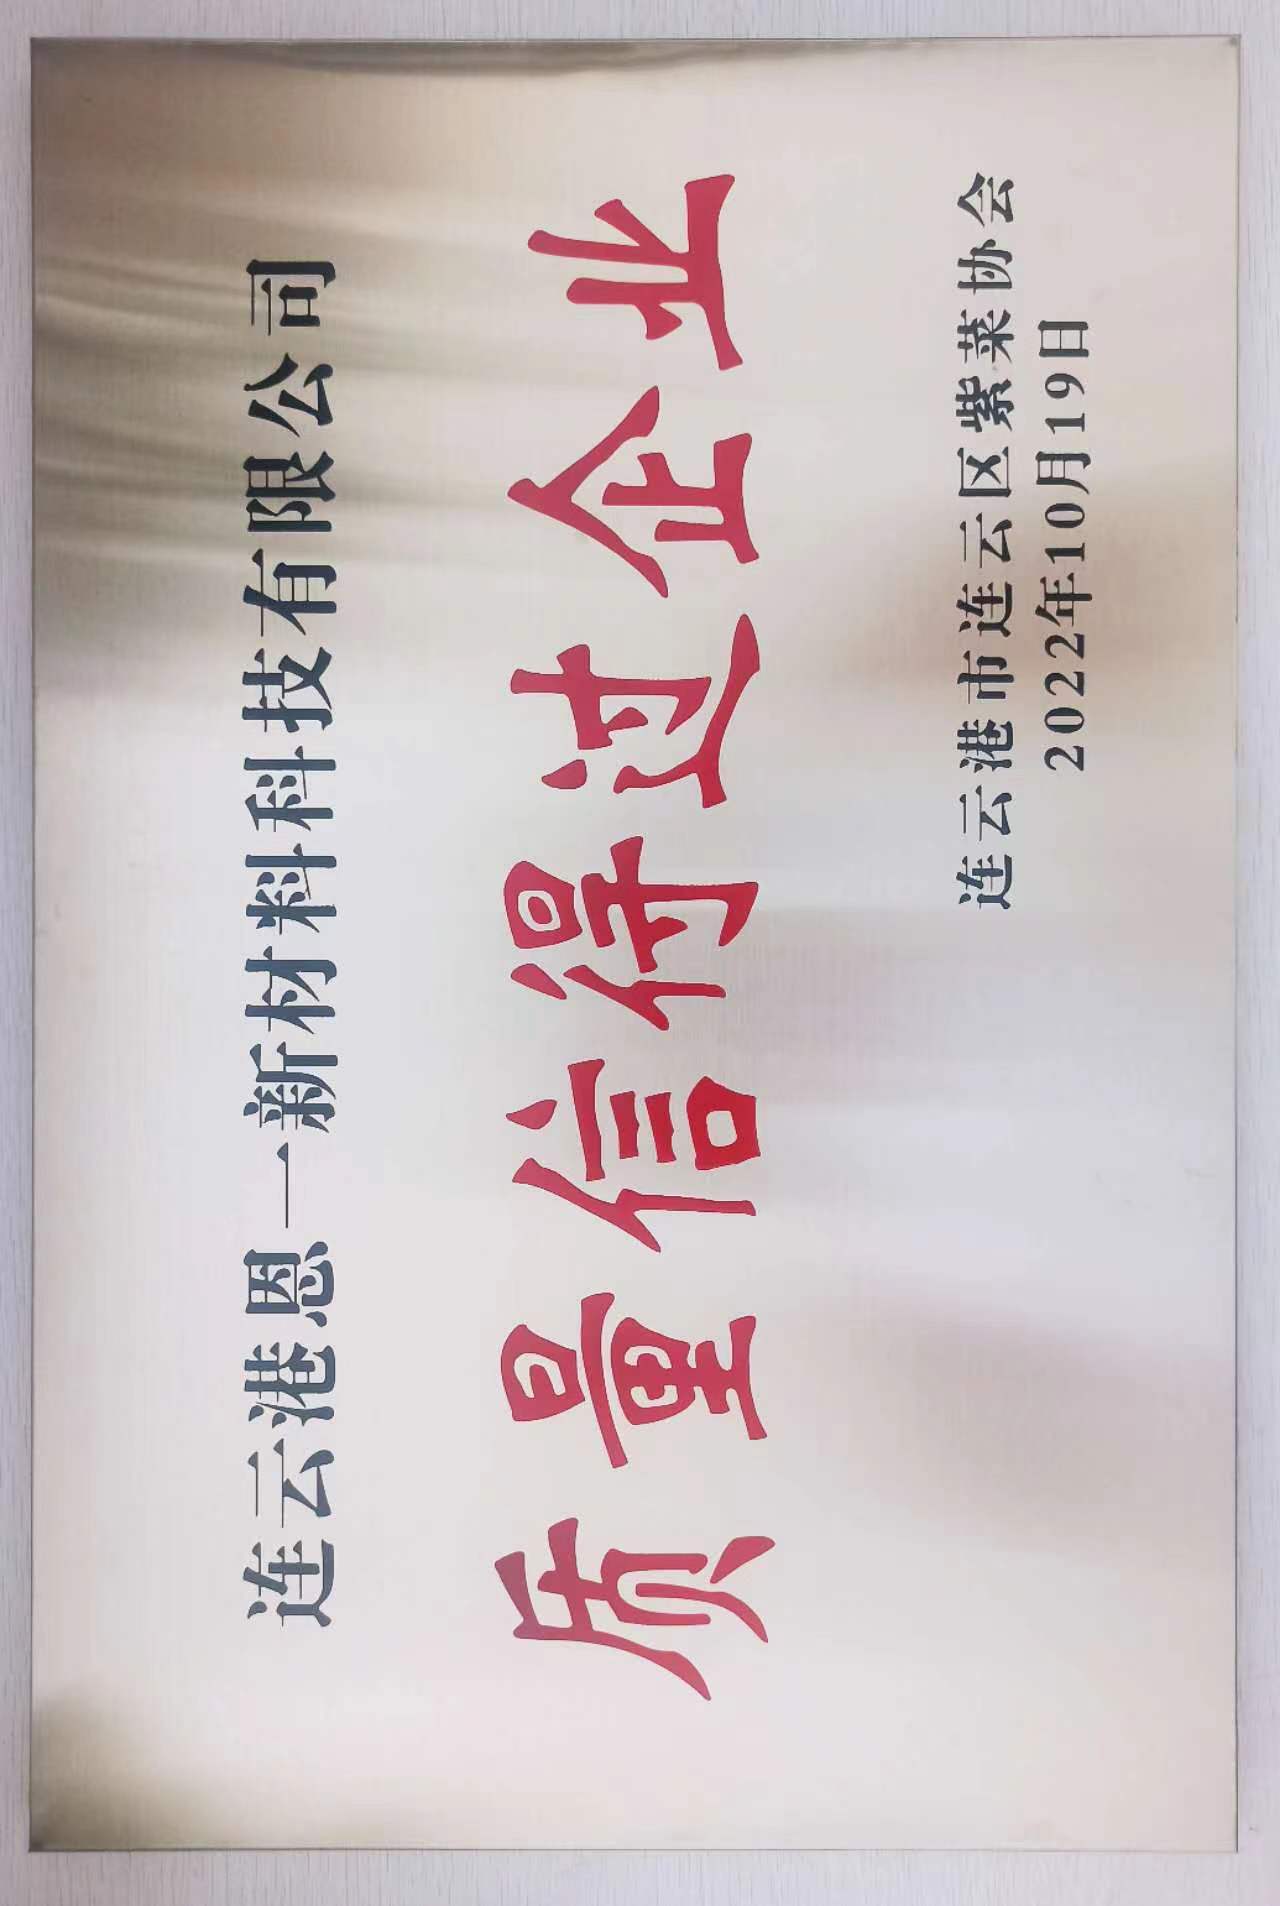 连云港恩一新材料科技有限公司
质量信得过企业
连云港市连云区紫菜协会
2022年10月19日